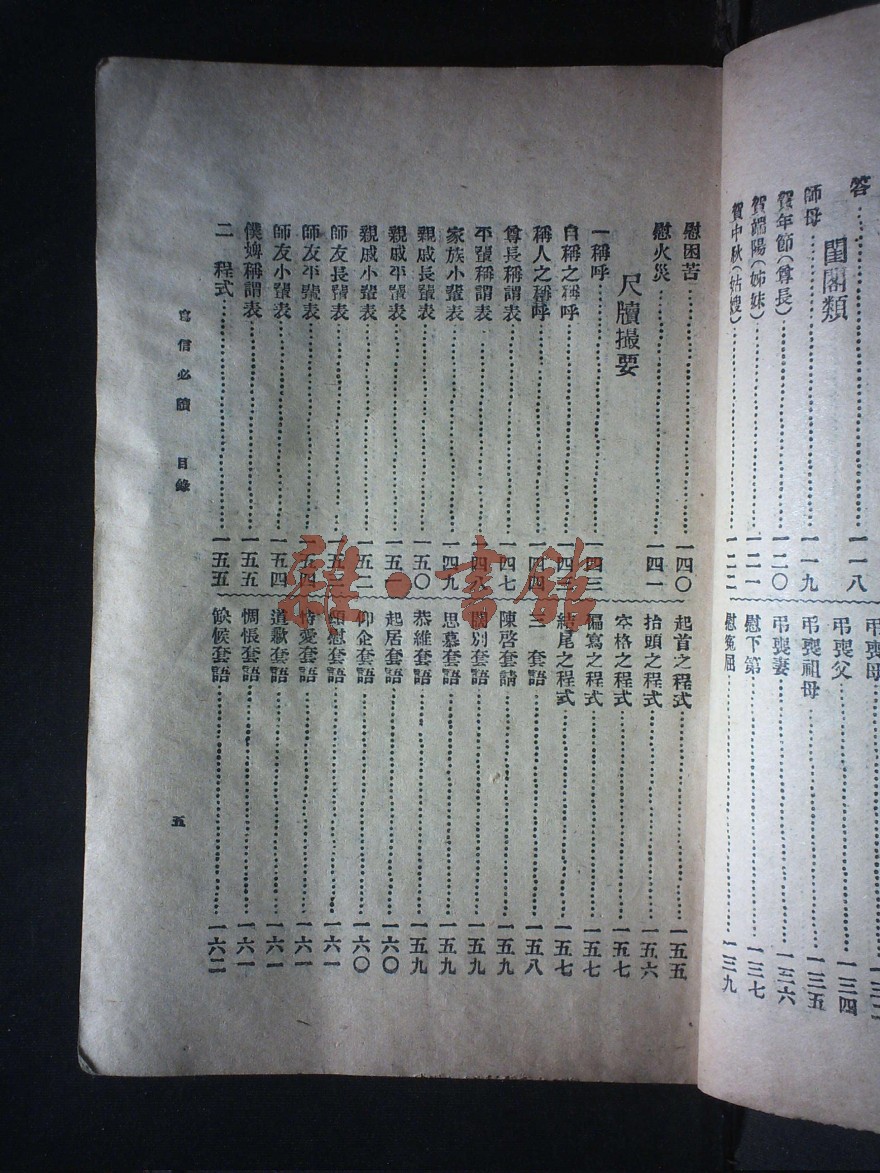 答……一一八
閨閣類
師母……一一九
賀年節(尊長)……一二〇
賀端陽(姊妹)……一二一
賀中秋(姑嫂)……一二二
弔喪母
弔喪父……一三四
弔喪祖母……一三五
弔喪妻……一三六
慰下第……一三七
慰冤屈……一三九
慰困苦……一四〇
慰火災……一四一
尺牘撮要
一稱呼……一四三
自稱之稱呼……一四三
稱人之稱呼……一四四
尊長稱謂表……一四七
平輩稱謂表……一四八
家族小輩表……一四九
親戚長輩表……一五〇
親戚平輩表……一五一
親戚小輩表……一五二
師友長輩表
師友平輩表……一五四
師友小輩表……一五四
僕婢稱謂表……一五五
二 程式……一五五
起首之程式……一五五
抬頭之程式……一五六
空格之程式……一五七
偏寫之程式……一五七
結尾之程式……一五七
三 套語……一五八
陳啓套請……一五九
闊別套語……一五九
思慕套語……一五九
恭維套語……一五九
起居套語……一六〇
仰企套語……一六〇
頌慰套語……一六一
恃愛套語……一六一
道歉套語……一六一
惆悵套語……一六一
缺候套語……一六二
寫信必讀 目錄
五
雜·書館